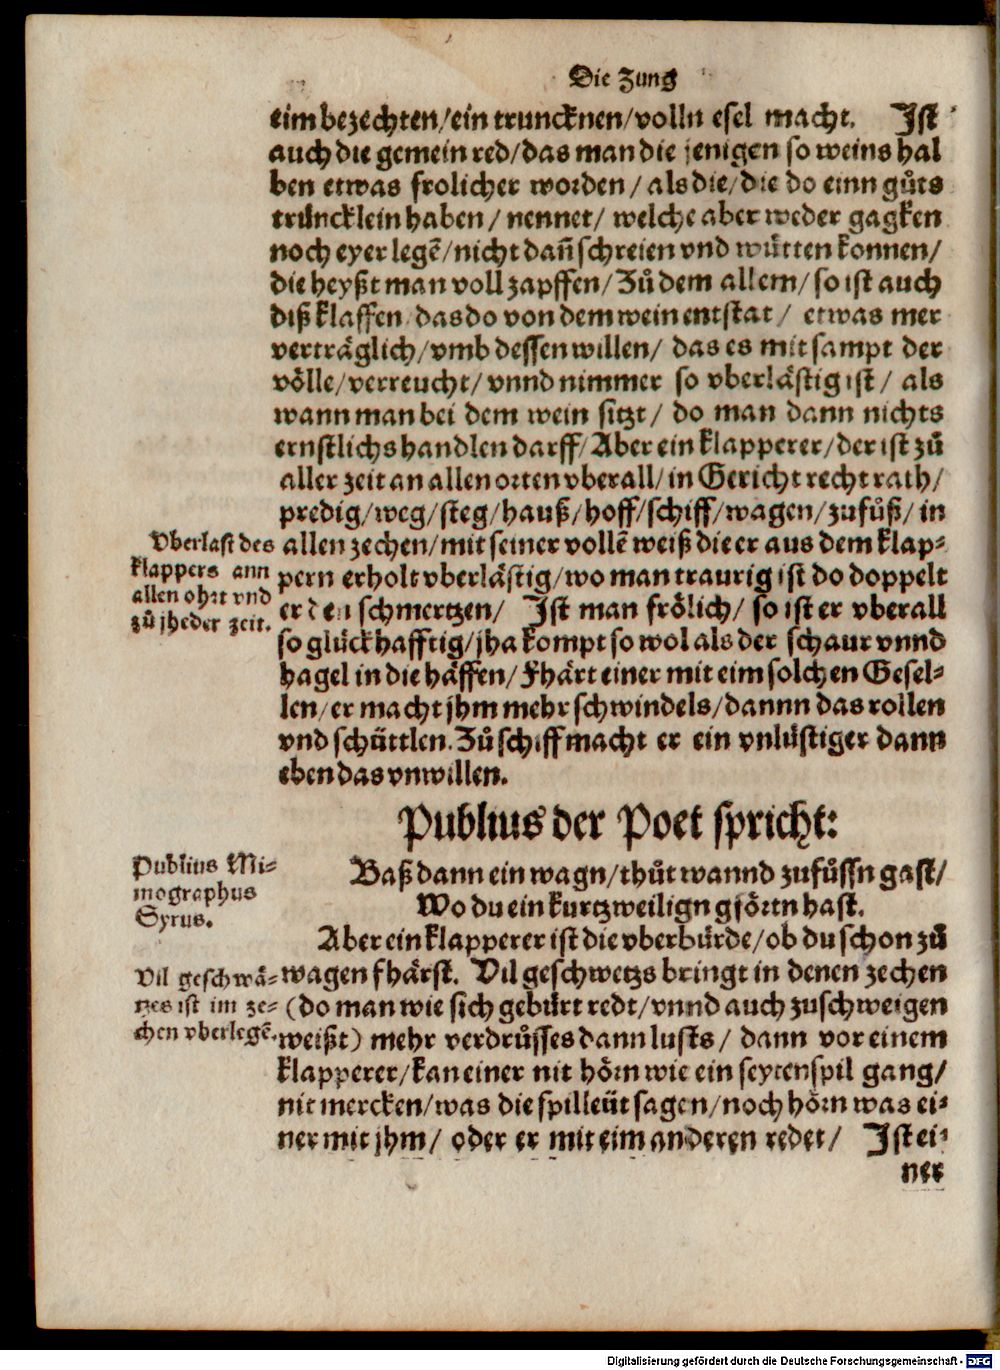 Die Zung
eim bezechten/ein truncknen/volln esel macht. Ist
auch die gemein red/das man die jenigen so weins hal
ben etwas frolicher worden/als die/die do einn gůts
trüncklein haben/nennet/welche aber weder gagken
noch eyer legẽ/nicht dañ schreien vnd wütten konnen/
die heyßt man voll zapffen/Zů dem allem/so ist auch
diß klaffen das do von dem wein entstat/ etwas mer
verträglich/vmb dessen willen/ das es mit sampt der
völle/verreucht/vnnd nimmer so vberlästig ist/ als
wann man bei dem wein sitzt/ do man dann nichts
ernstlichs handlen darff/Aber ein klapperer/der ist zů
aller zeit an allen orten vberall/in Gericht recht rath/
predig/weg/steg/hauß/hoff/schiff/wagen/zufůß/in
allen zechen/mit seiner vollẽ weiß die er aus dem klap-
pern erholt vberlästig/wo man traurig ist do doppelt
er den schmertzen/ Ist man frölich/ so ist er vberall
so glückhafftig/jha kompt so wol als der schaur vnnd
hagel in die häffen/Fhärt einer mit eim solchen Gesel-
len/er macht jhm mehr schwindels/dannn das rollen
vnd schüttlen. Zů schiff macht er ein vnlüstiger dann
eben das vnwillen.
Vberlast des
klappers ann
allen ohrt vnd
zů jheder zeit.
Publius der Poet spricht:
Baß dann ein wagn/thůt wannd zufůssn gast/
Wo du ein kurtzweilign gförtn hast.
Publius Mi-
mographus
Syrus.
Aber ein klapperer ist die vberbürde/ob du schon zů
wagen fhärst. Vil geschwetzs bringt in denen zechen
(do man wie sich gebürt redt/vnnd auch zuschweigen
weißt) mehr verdrůsses dann lusts/ dann vor einem
klapperer/kan einer nit hörn wie ein seytenspil gang/
nit mercken/was die spilleüt sagen/noch hörn was ei-
ner mit jhm/ oder er mit eim anderen redet/ Ist ei-
Vil geschwä-
tzes ist im ze-
chen vberlegẽ.
ner
Digitalisierung gefördert durch die Deutsche Forschungsgemeinschaft - DFG